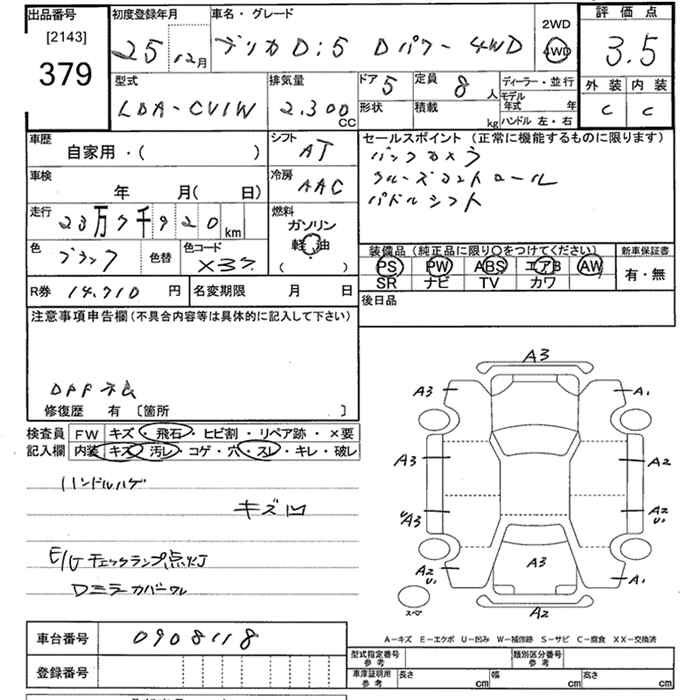 出品番号
[2143]
379
初度登録年月
25 年 12月
車名・グレード
デリカD:5 Dパワー 4WD
2WD
4WD
評価点
3.5
型式
LDA-CV1W
排気量
2.300 CC
ドア 5
定員 8 人
形状
積載 kg
ディーラー・並行
モデル年式 年
ハンドル 左・右
外装 内装
C C
車歴
自家用・( )
シフト
AT
車検
年 月( 日)
冷房
AAC
走行
23万7千920km
燃料
ガソリン
軽油
( )
色
ブラック
色替
色コード
X37
R券 14.710 円
名変期限 月 日
セールスポイント (正常に機能するものに限ります)
バックカメラ
クルーズコントロール
パドルシフト
装備品(純正品に限り○をつけてください)
PS PW ABS エアB AW
SR ナビ TV カワ
新車保証書
有・無
後日品
注意事項申告欄(不具合内容等は具体的に記入して下さい)
DPF不良
修復歴 有 [箇所 ]
検査員記入欄
FW キズ・飛石・ヒビ割・リペア跡・×要
内装 キズ・汚レ・コゲ・穴・スレ・キレ・破レ
ハンドルハゲ
キズ凹
E/Gチェックランプ点灯
Dミラーカバーワレ
A3
A3
A1
A3
A2
UA3
A2 U1
A2 U1
A3
A1
スペア
A2
A-キズ E-エクボ U-凹み W-補修跡 S-サビ C-腐食 XX-交換済
車台番号
0908118
登録番号
型式指定番号 参考
類別区分番号 参考
車庫証明用 参考
長さ cm
幅 cm
高さ cm